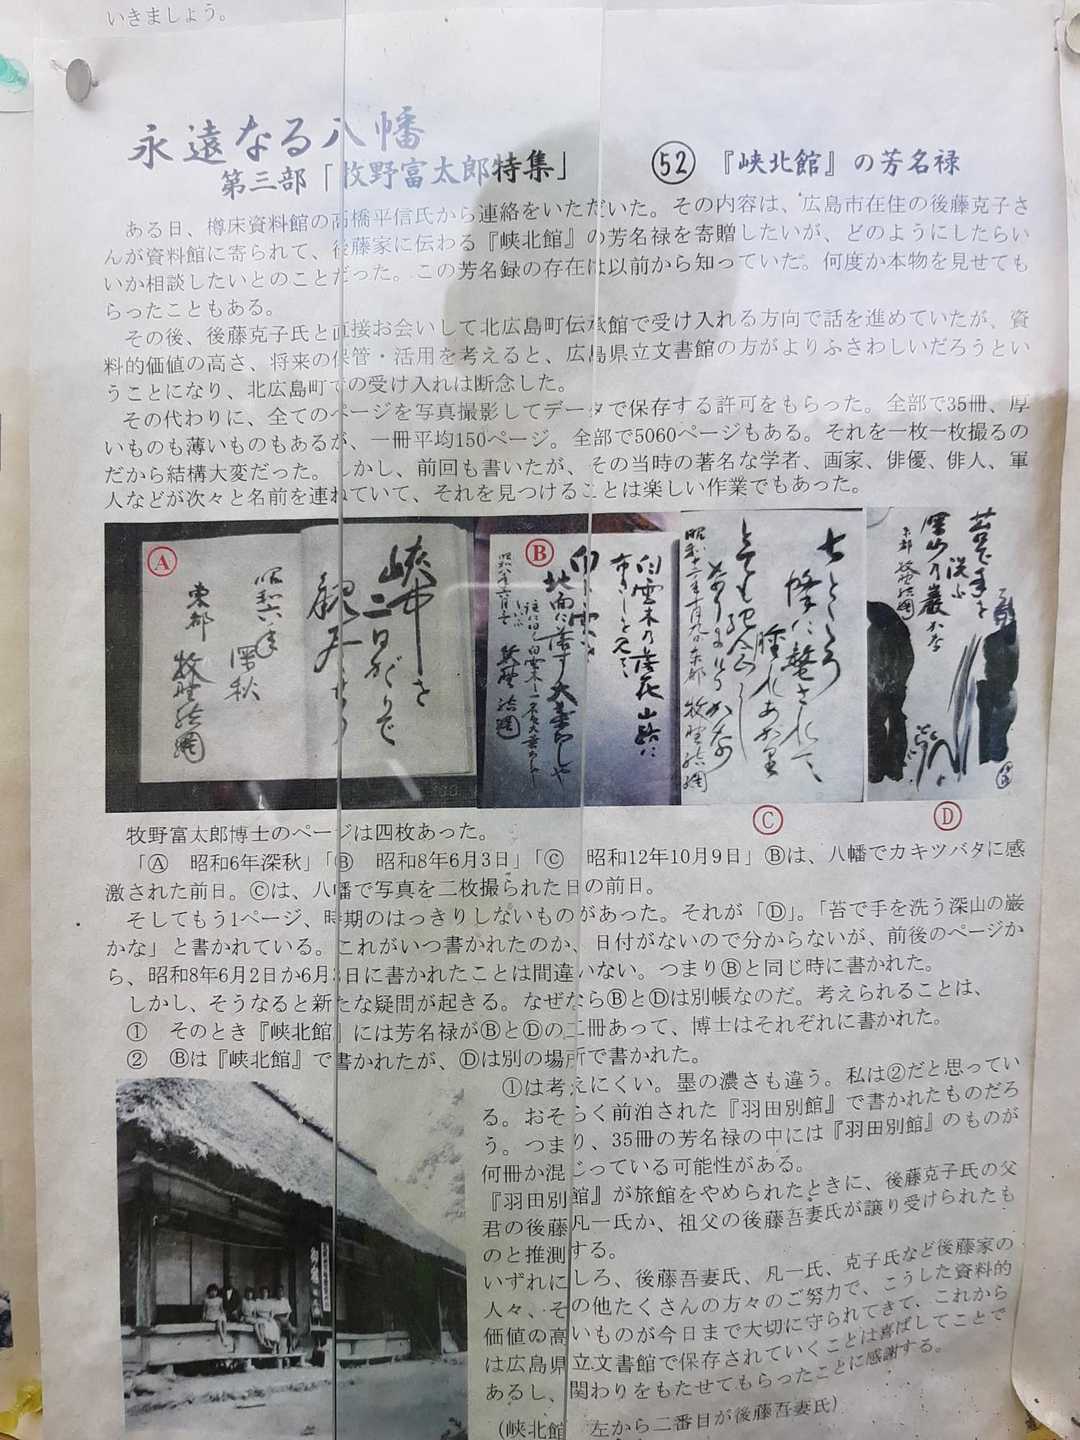 いきましょう。
永遠なる八幡
第三部「牧野富太郎特集」 52 『峡北館』の芳名禄
ある日、樽床資料館の高橋平信氏から連絡をいただいた。その内容は、広島市在住の後藤克子さ
んが資料館に寄られて、後藤家に伝わる『峡北館』の芳名禄を寄贈したいが、どのようにしたらい
いか相談したいとのことだった。この芳名録の存在は以前から知っていた。何度か本物を見せても
らったこともある。
その後、後藤克子氏と直接お会いして北広島町伝承館で受け入れる方向で話を進めていたが、資
料的価値の高さ、将来の保管・活用を考えると、広島県立文書館の方がよりふさわしいだろうとい
うことになり、北広島町での受け入れは断念した。
その代わりに、全てのページを写真撮影してデータで保存する許可をもらった。全部で35冊、厚
いものも薄いものもあるが、一冊平均150ページ。全部で5060ページもある。それを一枚一枚撮るの
だから結構大変だった。しかし、前回も書いたが、その当時の著名な学者、画家、俳優、俳人、軍
人などが次々と名前を連ねていて、それを見つけることは楽しい作業でもあった。
Ⓐ
峡中を
二日がゝりで
昭和六年
深秋
東都 牧野結網
Ⓑ
白雲木の落花山路に
布きしを見て
昭和八年六月三日
牧野結網
昭和十二年十月九日 東都 牧野結網
Ⓒ
苔で手を
洗ふ
深山の巌かな
東都 牧野結網
Ⓓ
牧野富太郎博士のページは四枚あった。
「Ⓐ 昭和6年深秋」「Ⓑ 昭和8年6月3日」「Ⓒ 昭和12年10月9日」Ⓑは、八幡でカキツバタに感
激された前日。Ⓒは、八幡で写真を二枚撮られた日の前日。
そしてもう1ページ、時期のはっきりしないものがあった。それが「Ⓓ」。「苔で手を洗う深山の巌
かな」と書かれている。これがいつ書かれたのか、日付がないので分からないが、前後のページか
ら、昭和8年6月2日か6月3日に書かれたことは間違いない。つまりⒷと同じ時に書かれた。
しかし、そうなると新たな疑問が起きる。なぜならⒷとⒹは別帳なのだ。考えられることは、
① そのとき『峡北館』には芳名禄がⒷとⒹの二冊あって、博士はそれぞれに書かれた。
② Ⓑは『峡北館』で書かれたが、Ⓓは別の場所で書かれた。
①は考えにくい。墨の濃さも違う。私は②だと思ってい
る。おそらく前泊された『羽田別館』で書かれたものだろ
う。つまり、35冊の芳名禄の中には『羽田別館』のものが
何冊か混じっている可能性がある。
『羽田別館』が旅館をやめられたときに、後藤克子氏の父
君の後藤凡一氏か、祖父の後藤吾妻氏が譲り受けられたも
のと推測する。
いずれにしろ、後藤吾妻氏、凡一氏、克子氏など後藤家の
人々、その他たくさんの方々のご努力で、こうした資料的
価値の高いものが今日まで大切に守られてきて、これから
は広島県立文書館で保存されていくことは喜ばしてことで
あるし、関わりをもたせてもらったことに感謝する。
(峡北館 左から二番目が後藤吾妻氏)